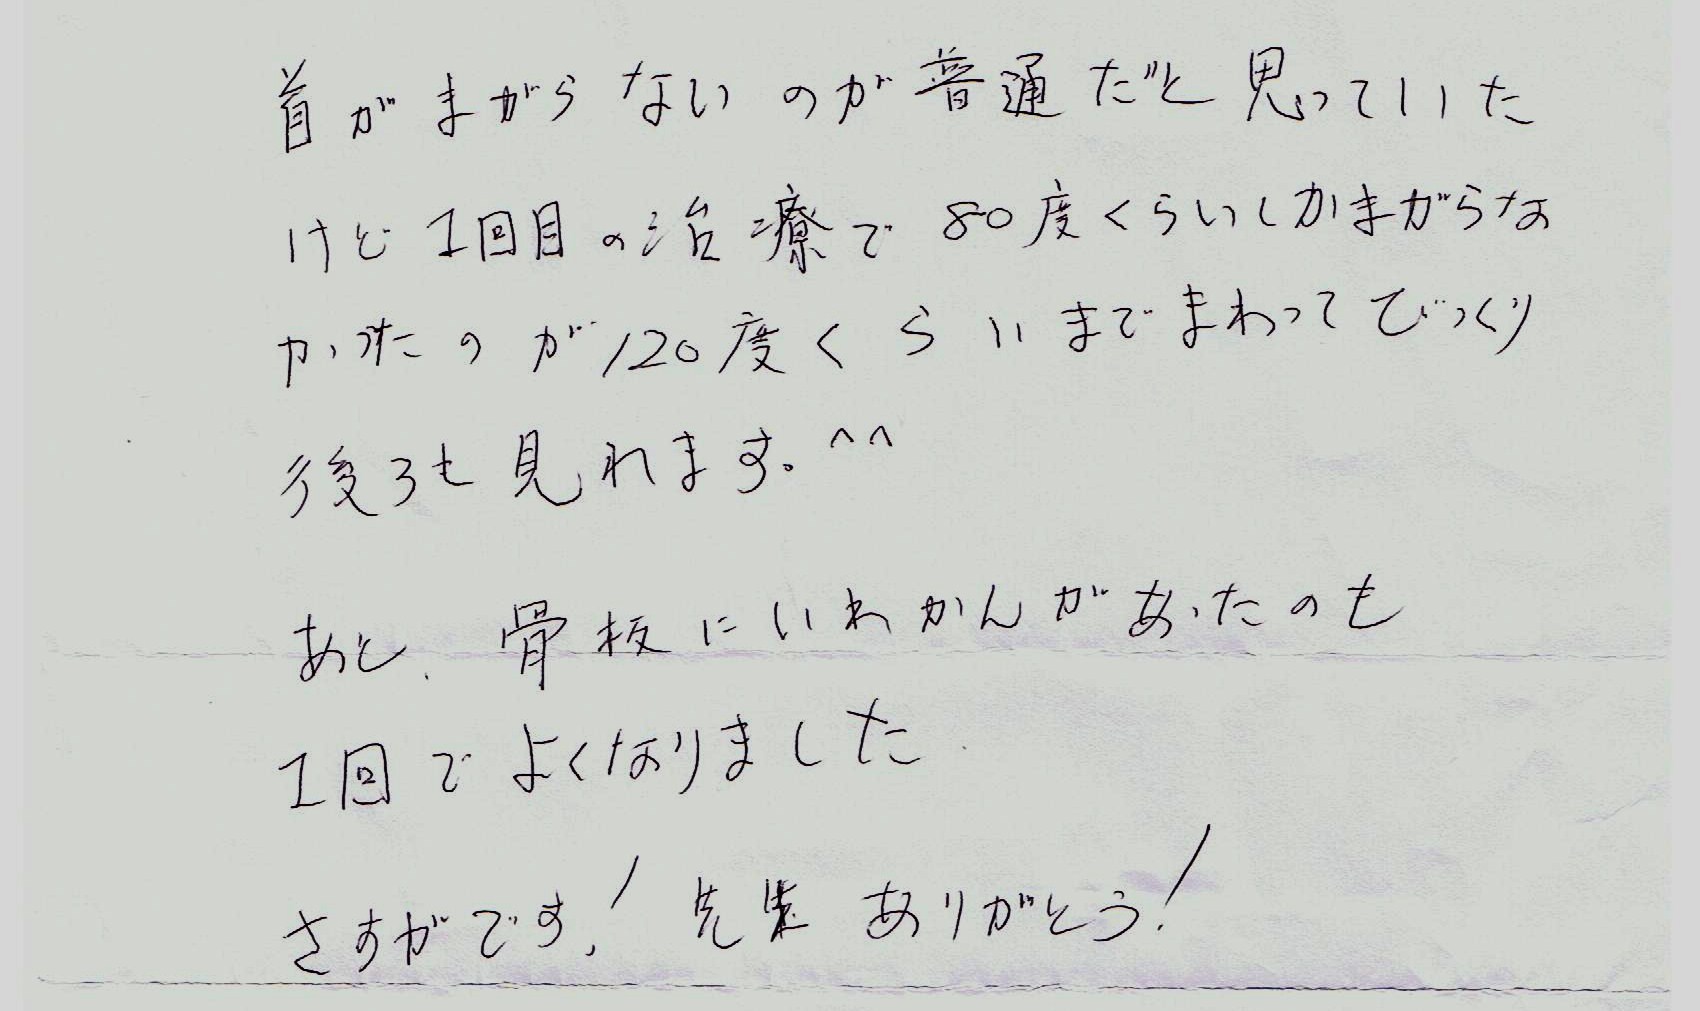 首がまがらないのが普通だと思っていた
けど1回目の治療で80度くらいしかまがらな
かったのが120度くらいまでまわってびっくり
後ろも見れます。^^
あと、骨板にいわかんがあったのも
1回でよくなりました
さすがです!先生ありがとう!